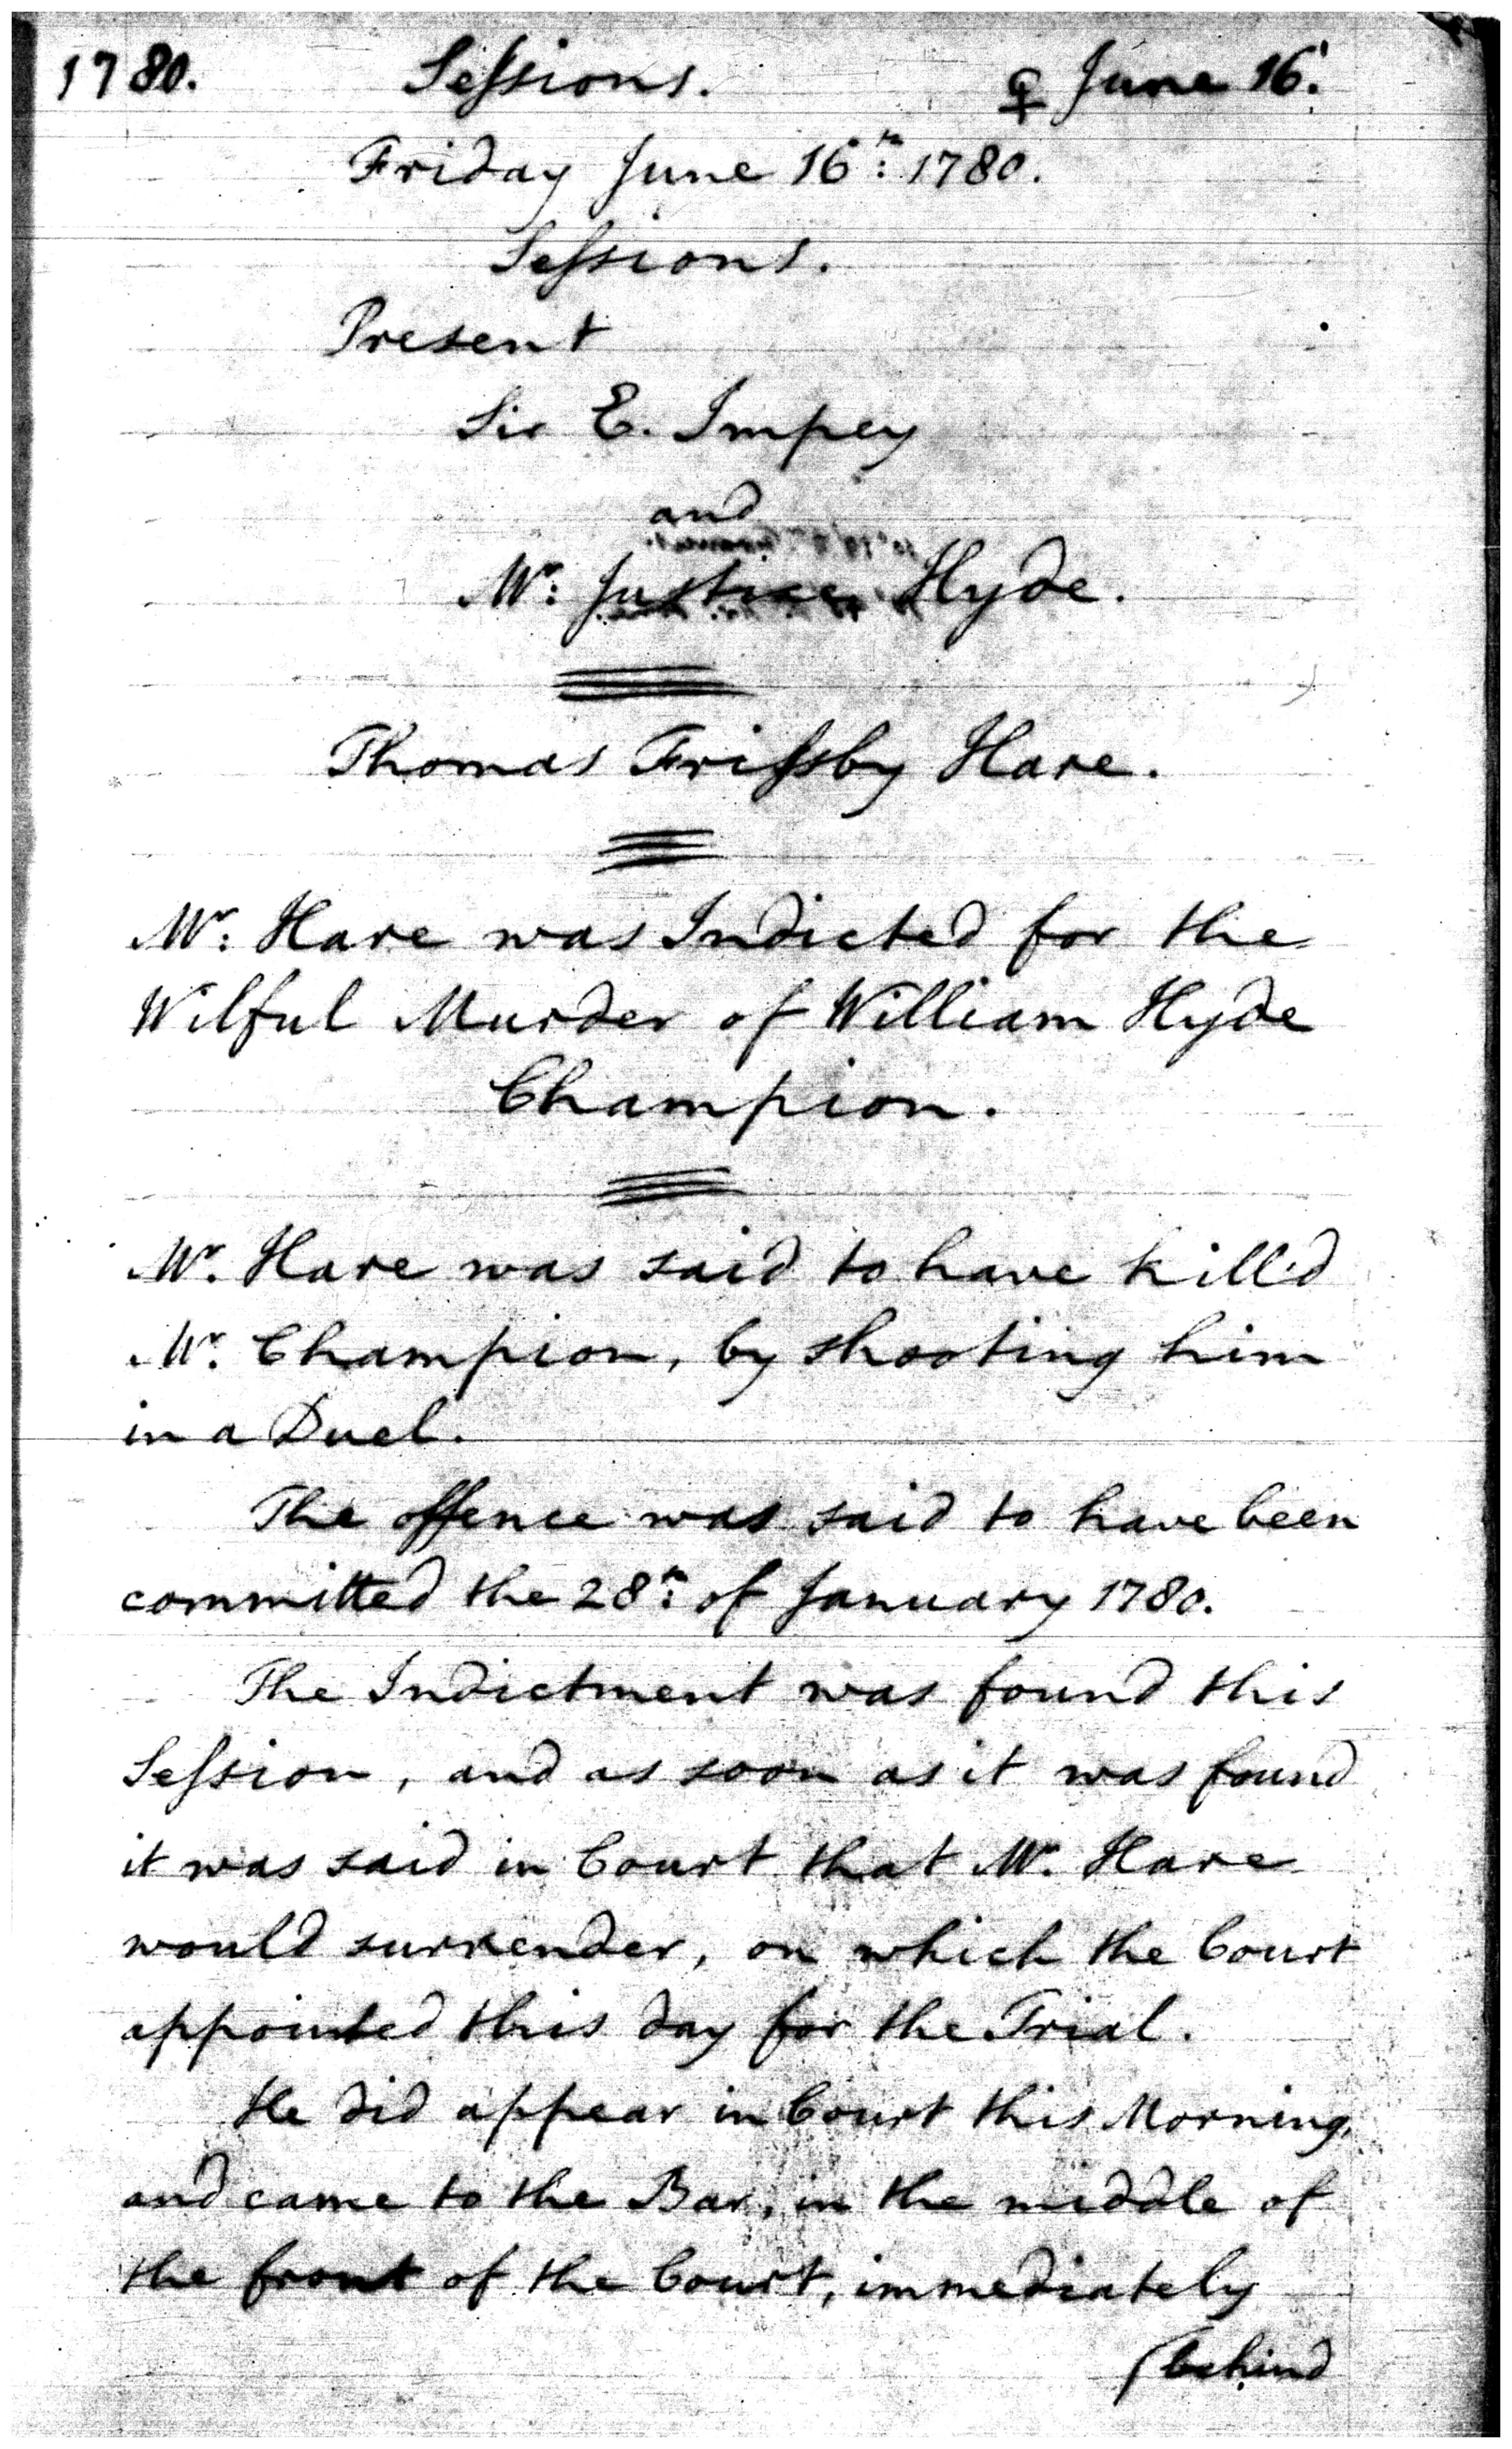 1780. Seſsions. ♀ June 16.
Friday June 16th: 1780.
Seſsions.
Present
Sir E. Impey
and
Mr: Justice Hyde.
Thomas Friſsby Hare.
Mr: Hare was Indicted for the
Wilful Murder of William Hyde
Champion.
Mr. Hare was said to have kill'd
Mr. Champion, by shooting him
in a Duel.
The offence was said to have been
committed the 28th: of January 1780.
The Indictment was found this
Seſsion, and as soon as it was found
it was said in Court that Mr. Hare
would surrender, on which the Court
appointed this day for the Trial.
He did appear in Court this Morning,
and came to the Bar, in the middle of
the front of the Court, immediately
(behind